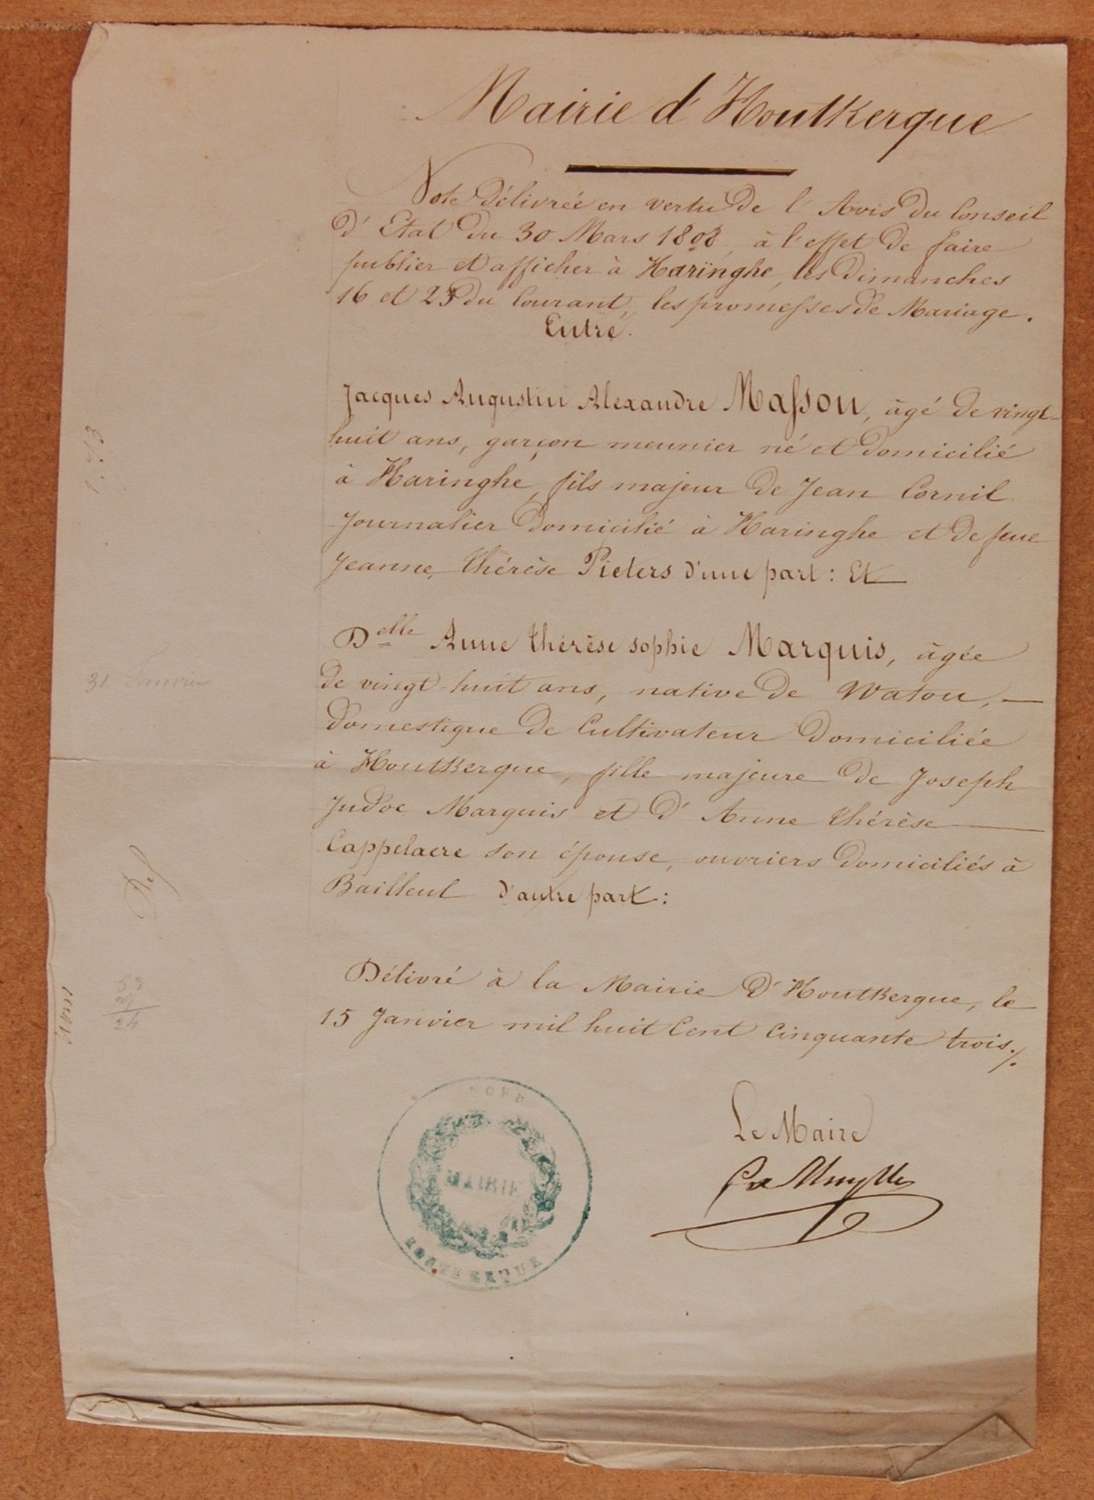 Mairie d'Houtkerque
Note Délivrée en vertu De l'Avis Du Conseil
D'Etat Du 30 Mars 1808, à l'effet De faire
publier et afficher à Haringhe, les Dimanches
16 et 23 Du Courant, les promesses De Mariage.
Entre.
Jacques Augustin Alexandre Masson, âgé De vingt-
huit ans, garçon meunier né et Domicilié
à Haringhe, fils majeur De Jean Cornil
Journalier Domicilié à Haringhe et De feue
Jeanne, thérèse Pieters D'une part : Et
Delle Anne thérèse sophie Marquis, âgée
De vingt-huit ans, native De Watou,
Domestique De Cultivateur Domiciliée
à Houtkerque, fille majeure De Joseph
Judoc Marquis et D'Anne thérèse
Cappelaere son épouse, ouvriers Domiciliés à
Bailleul D'autre part :
Délivré à la Mairie D'Houtkerque, le
15 Janvier mil huit Cent Cinquante trois./.
Le Maire
NORD
MAIRIE
31 Janvier